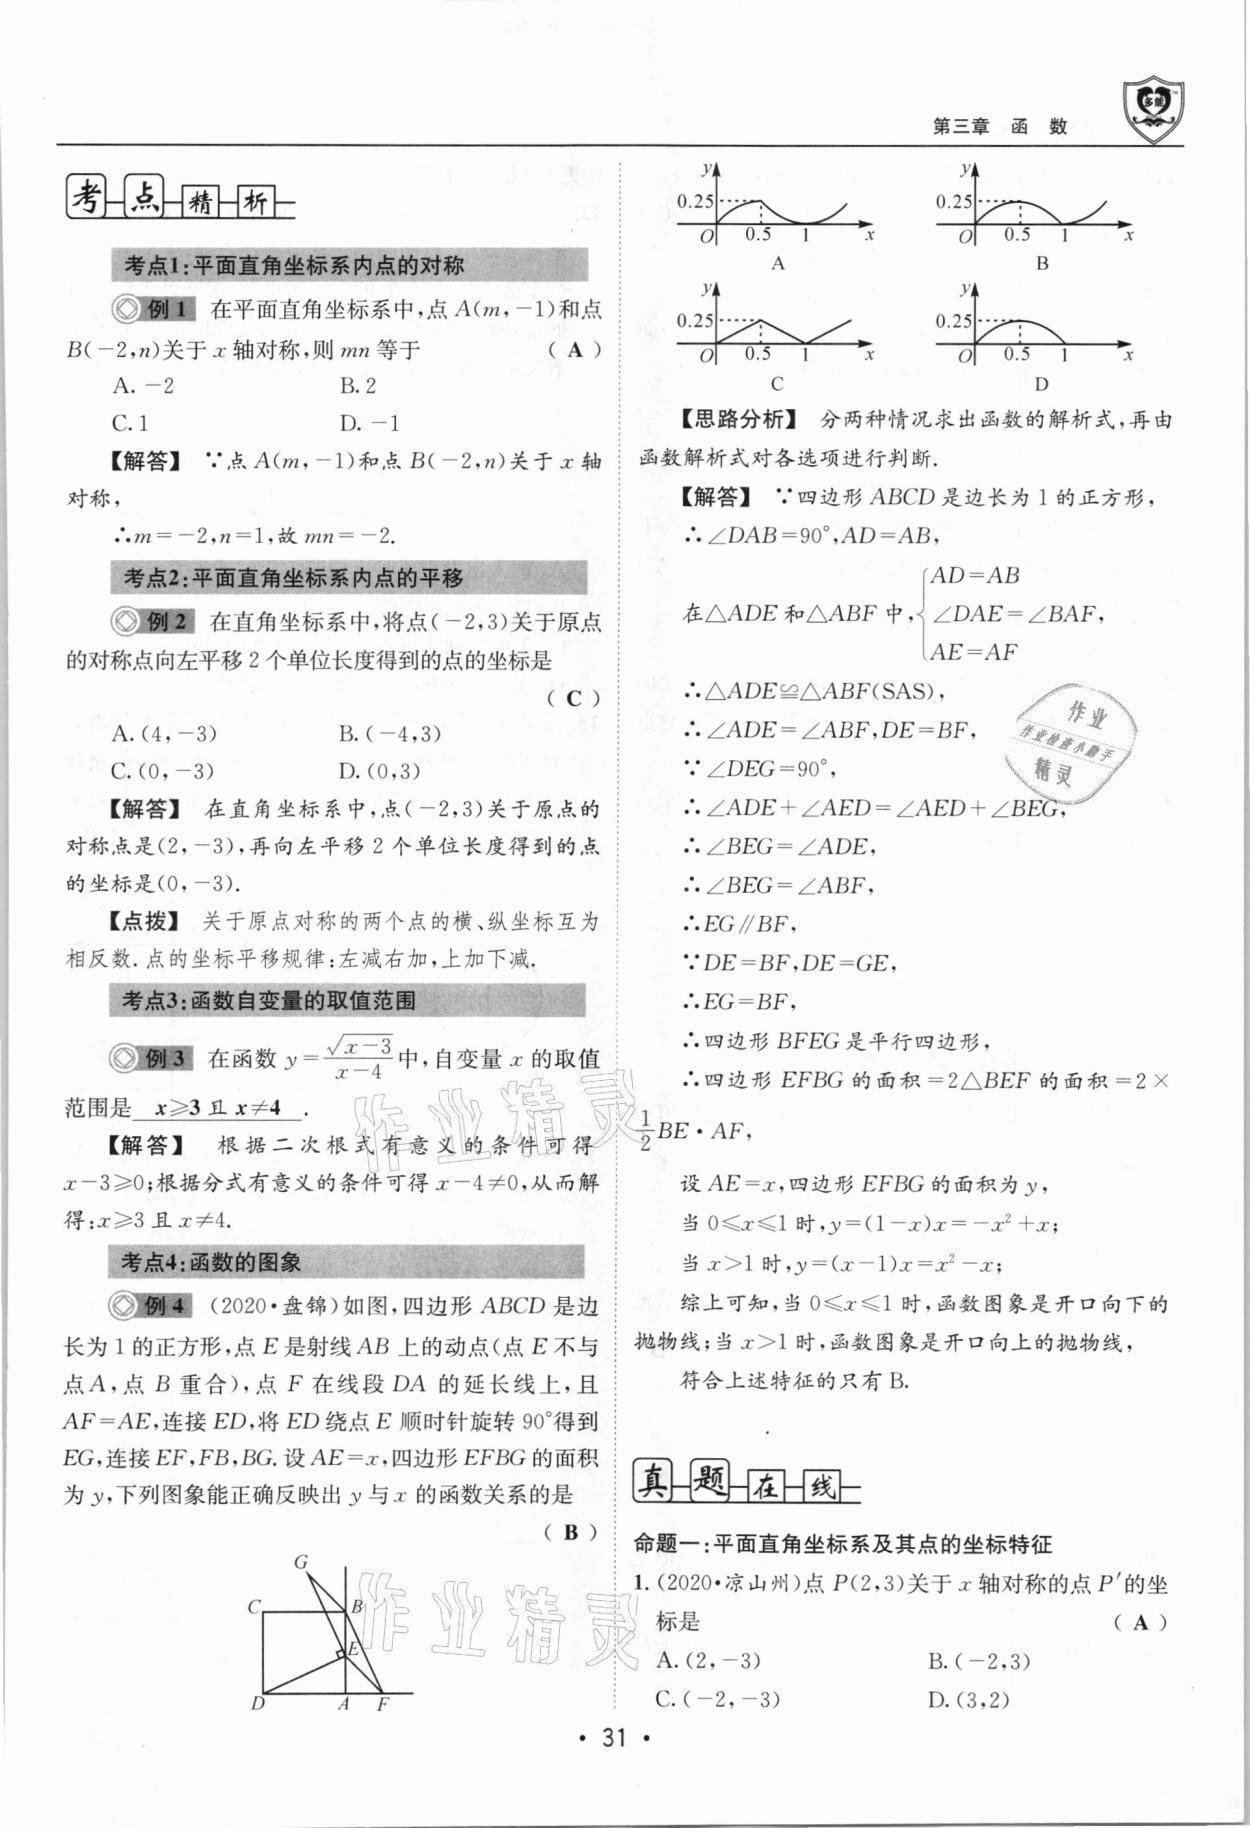 第三章 函 数
多能
考点精析
考点1:平面直角坐标系内点的对称
例1 在平面直角坐标系中,点 A(m,-1)和点
B(-2,n)关于 x 轴对称,则 mn 等于 ( A )
A. -2 B. 2
C. 1 D. -1
【解答】 ∵点 A(m,-1)和点 B(-2,n)关于 x 轴
对称,
∴m=-2,n=1,故 mn=-2.
考点2:平面直角坐标系内点的平移
例2 在直角坐标系中,将点(-2,3)关于原点
的对称点向左平移 2 个单位长度得到的点的坐标是
( C )
A. (4,-3) B. (-4,3)
C. (0,-3) D. (0,3)
【解答】 在直角坐标系中,点(-2,3)关于原点的
对称点是(2,-3),再向左平移 2 个单位长度得到的点
的坐标是(0,-3).
【点拨】 关于原点对称的两个点的横、纵坐标互为
相反数. 点的坐标平移规律:左减右加,上加下减.
考点3:函数自变量的取值范围
例3 在函数 y=√(x-3)/(x-4)中,自变量 x 的取值
范围是 x≥3 且 x≠4 .
【解答】 根据二次根式有意义的条件可得
x-3≥0;根据分式有意义的条件可得 x-4≠0,从而解
得:x≥3 且 x≠4.
考点4:函数的图象
例4 (2020·盘锦)如图,四边形 ABCD 是边
长为 1 的正方形,点 E 是射线 AB 上的动点(点 E 不与
点 A,点 B 重合),点 F 在线段 DA 的延长线上,且
AF=AE,连接 ED,将 ED 绕点 E 顺时针旋转 90°得到
EG,连接 EF,FB,BG. 设 AE=x,四边形 EFBG 的面积
为 y,下列图象能正确反映出 y 与 x 的函数关系的是
( B )
G
C B
E
D A F
y y
0.25 0.25
O 0.5 1 x O 0.5 1 x
A B
y y
0.25 0.25
O 0.5 1 x O 0.5 1 x
C D
【思路分析】 分两种情况求出函数的解析式,再由
函数解析式对各选项进行判断.
【解答】 ∵四边形 ABCD 是边长为 1 的正方形,
∴∠DAB=90°,AD=AB,
AD=AB
在△ADE 和△ABF 中, ∠DAE=∠BAF,
AE=AF
∴△ADE≌△ABF(SAS),
∴∠ADE=∠ABF,DE=BF,
∵∠DEG=90°,
∴∠ADE+∠AED=∠AED+∠BEG,
∴∠BEG=∠ADE,
∴∠BEG=∠ABF,
∴EG∥BF,
∵DE=BF,DE=GE,
∴EG=BF,
∴四边形 BFEG 是平行四边形,
∴四边形 EFBG 的面积=2△BEF 的面积=2×
1/2 BE·AF,
设 AE=x,四边形 EFBG 的面积为 y,
当 0≤x≤1 时,y=(1-x)x=-x²+x;
当 x>1 时,y=(x-1)x=x²-x;
综上可知,当 0≤x≤1 时,函数图象是开口向下的
抛物线;当 x>1 时,函数图象是开口向上的抛物线,
符合上述特征的只有 B.
真题在线
命题一:平面直角坐标系及其点的坐标特征
1. (2020·凉山州)点 P(2,3)关于 x 轴对称的点 P′的坐
标是 ( A )
A. (2,-3) B. (-2,3)
C. (-2,-3) D. (3,2)
· 31 ·
作业
作业检查小助手
精灵
作业精灵
作业精灵